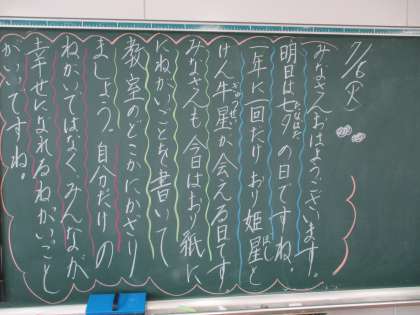 7/6(火)
みなさんおはようございます。
明日は七夕の日ですね。
たなばた
一年に一回だけおり姫星と
けん牛星が会える日です。
ぎゅうぼし
みなさんも今日はおり紙に
にねがいごとを書いて
教室のどこかにかざり
ましょう。自分だけの
ねがいではなく、みんなが
幸せになれるねがいごと
がいいですね。